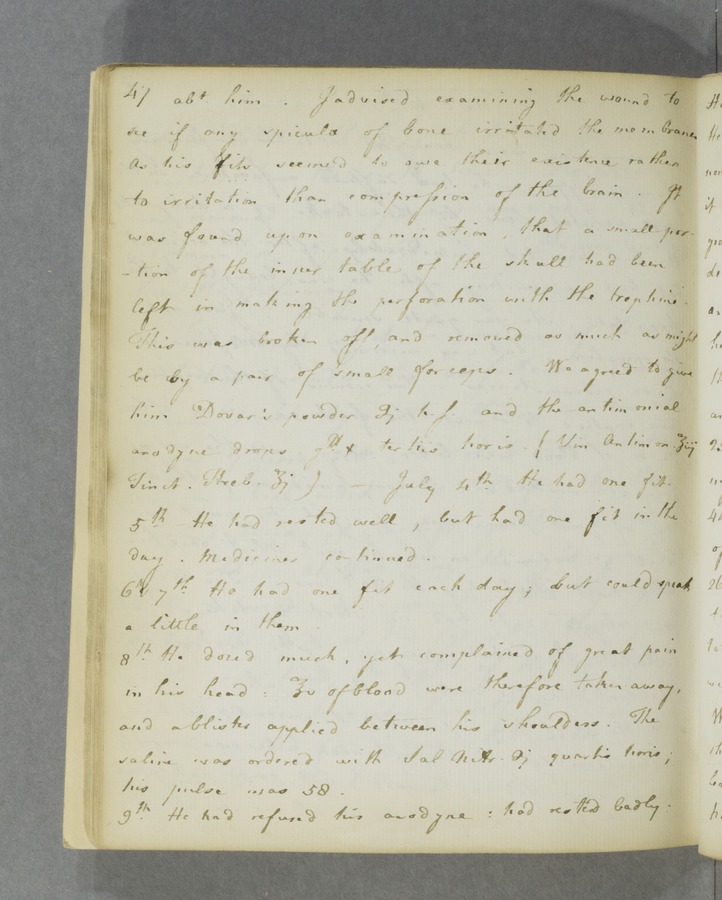 47 abt him . I advised examining the wound to
see if any spicula of bone irritated the membranes
as his fits seemed to owe their existence rather
to irritation than compression of the brain . It
was found upon examination , that a small por-
-tion of the inner table of the skull had been
left in making the perforation with the trephine .
This was broken off , and removed as much as might
be by a pair of small forceps . We agreed to give
him Dover's powder ℈j h. s. and the antimonial
anodyne drops gtt x tertiis horis . ( Vin Antimon ʒiij
Tinct . Theb . ʒj ) — July 4th He had one fit .
5th He had rested well , but had one fit in the
day . Medicines continued .
6th & 7th He had one fit each day ; but could speak
a little in them .
8th He dozed much , yet complained of great pain
in his head : ℥v of blood were therefore taken away ,
and a blister applied between his shoulders . The
saline was ordered with Sal Nitr . ℈j quartis horis ;
his pulse was 58 .
9th He had refused his anodyne : had rested badly :